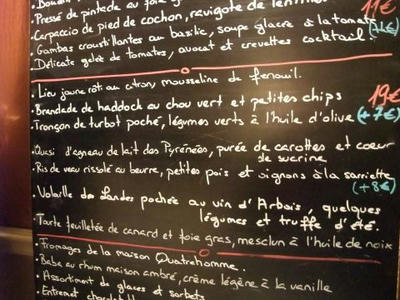 • Pressé de pintade au foie
• Carpaccio de pied de cochon, ravigote de lentilles 11€
• Gambas croustillantes au basilic, soupe glacée à la tomate
• Délicate gelée de tomates, avocat et crevettes cocktail.
• Lieu jaune rôti au citron, mousseline de fenouil.
• Brandade de haddock au chou vert et petites chips 19€
• Tronçon de turbot poché, légumes verts à l'huile d'olive (+7€)
• Quasi d'agneau de lait des Pyrénées, purée de carottes et coeur
de sucrine
• Ris de veau rissolé au beurre, petits pois et oignons à la sarriette
(+8€)
• Volaille des Landes pochée au vin d'Arbois, quelques
légumes et truffe d'été.
• Tarte feuilletée de canard et foie gras, mesclun à l'huile de noix
• Fromages de la maison Quatrehomme.
• Baba au rhum maison ambré, crème légère à la vanille
• Assortiment de glaces et sorbets
• Entremet